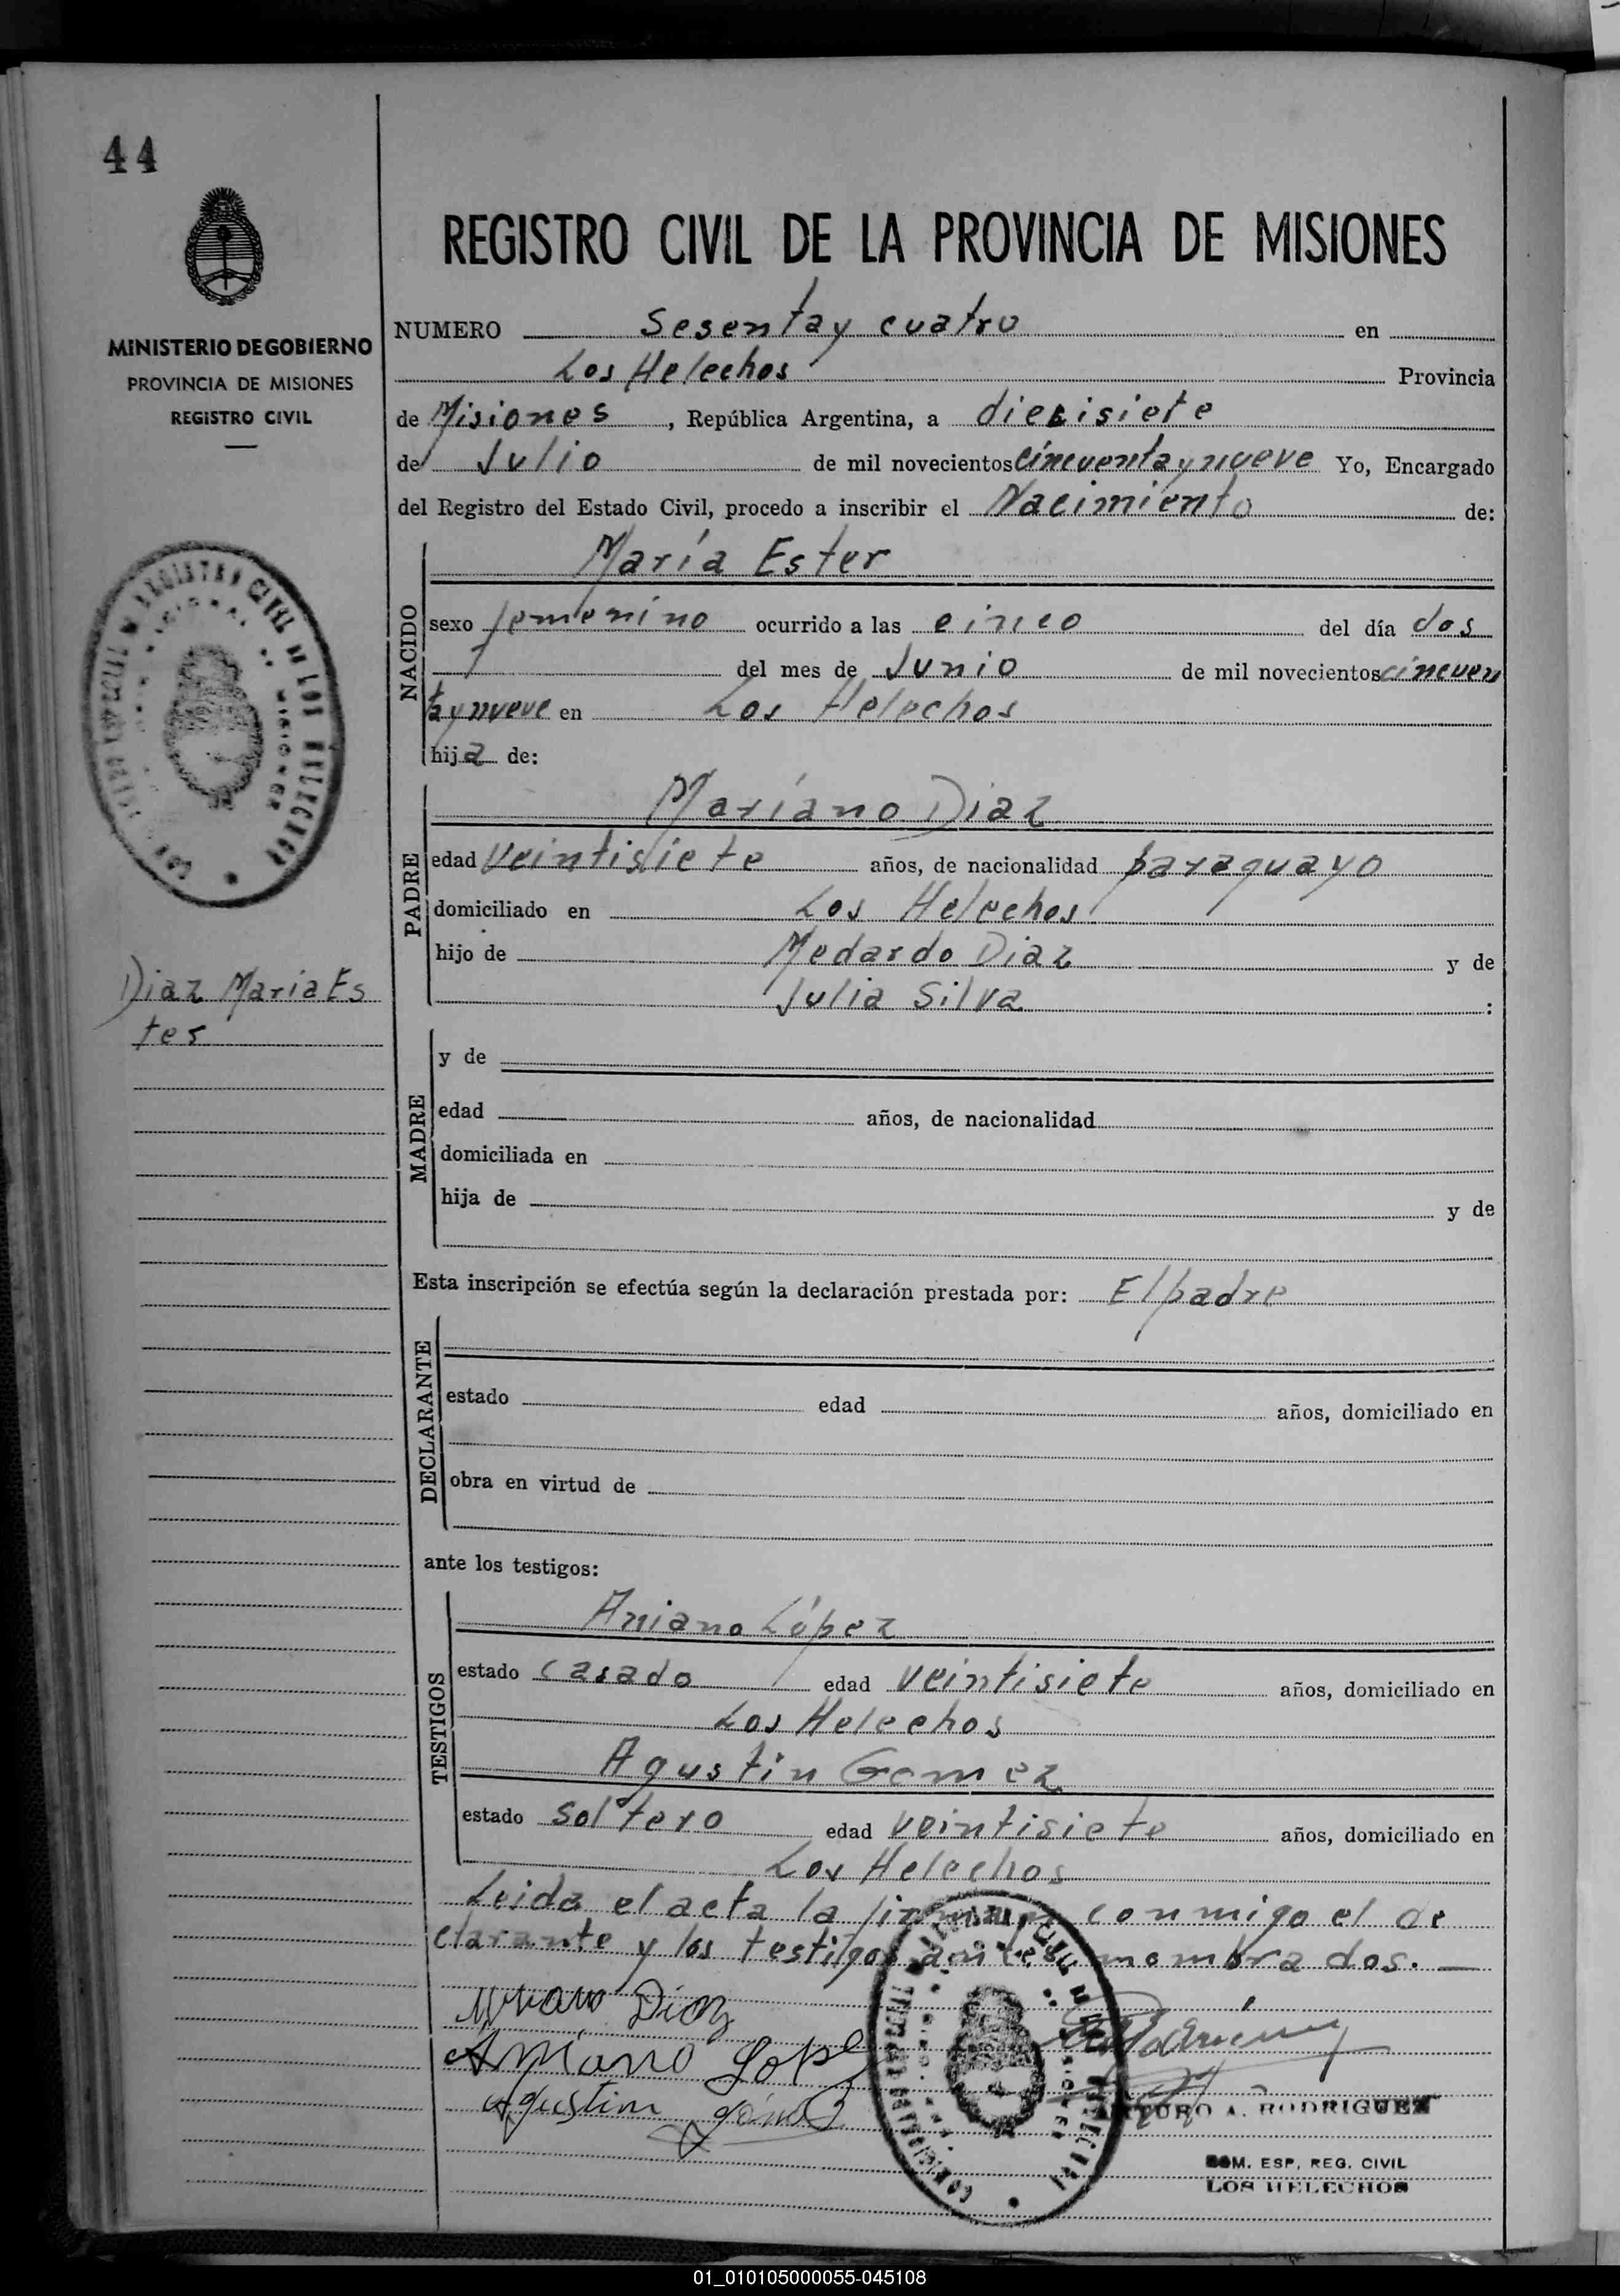 44
MINISTERIO DE GOBIERNO
PROVINCIA DE MISIONES
REGISTRO CIVIL
REGISTRO CIVIL DE LA PROVINCIA DE MISIONES
NUMERO Sesenta y cuatro en
Los Helechos Provincia
de Misiones, República Argentina, a diecisiete
de Julio de mil novecientos cincuenta y nueve Yo, Encargado
del Registro del Estado Civil, procedo a inscribir el Nacimiento de:
NACIDO
María Ester
sexo femenino ocurrido a las cinco del día dos
del mes de Junio de mil novecientos cincuen
ta y nueve en Los Helechos
hija de:
PADRE
Mariano Diaz
edad veintisiete años, de nacionalidad paraguayo
domiciliado en Los Helechos
hijo de Medardo Diaz y de
Julia Silva :
Diaz Maria Es
ter
MADRE
y de
edad años, de nacionalidad
domiciliada en
hija de y de
Esta inscripción se efectúa según la declaración prestada por: El padre
DECLARANTE
estado edad años, domiciliado en
obra en virtud de
ante los testigos:
TESTIGOS
Aniano López
estado casado edad veintisiete años, domiciliado en
Los Helechos
Agustin Gomez
estado soltero edad veintisiete años, domiciliado en
Los Helechos
Leida el acta la firman conmigo el de
clarante y los testigos antes nombrados. —
Diaz
Aniano Lope
Agustin
ARTURO A. RODRIGUEZ
COM. ESP. REG. CIVIL
LOS HELECHOS
01_010105000055-045108